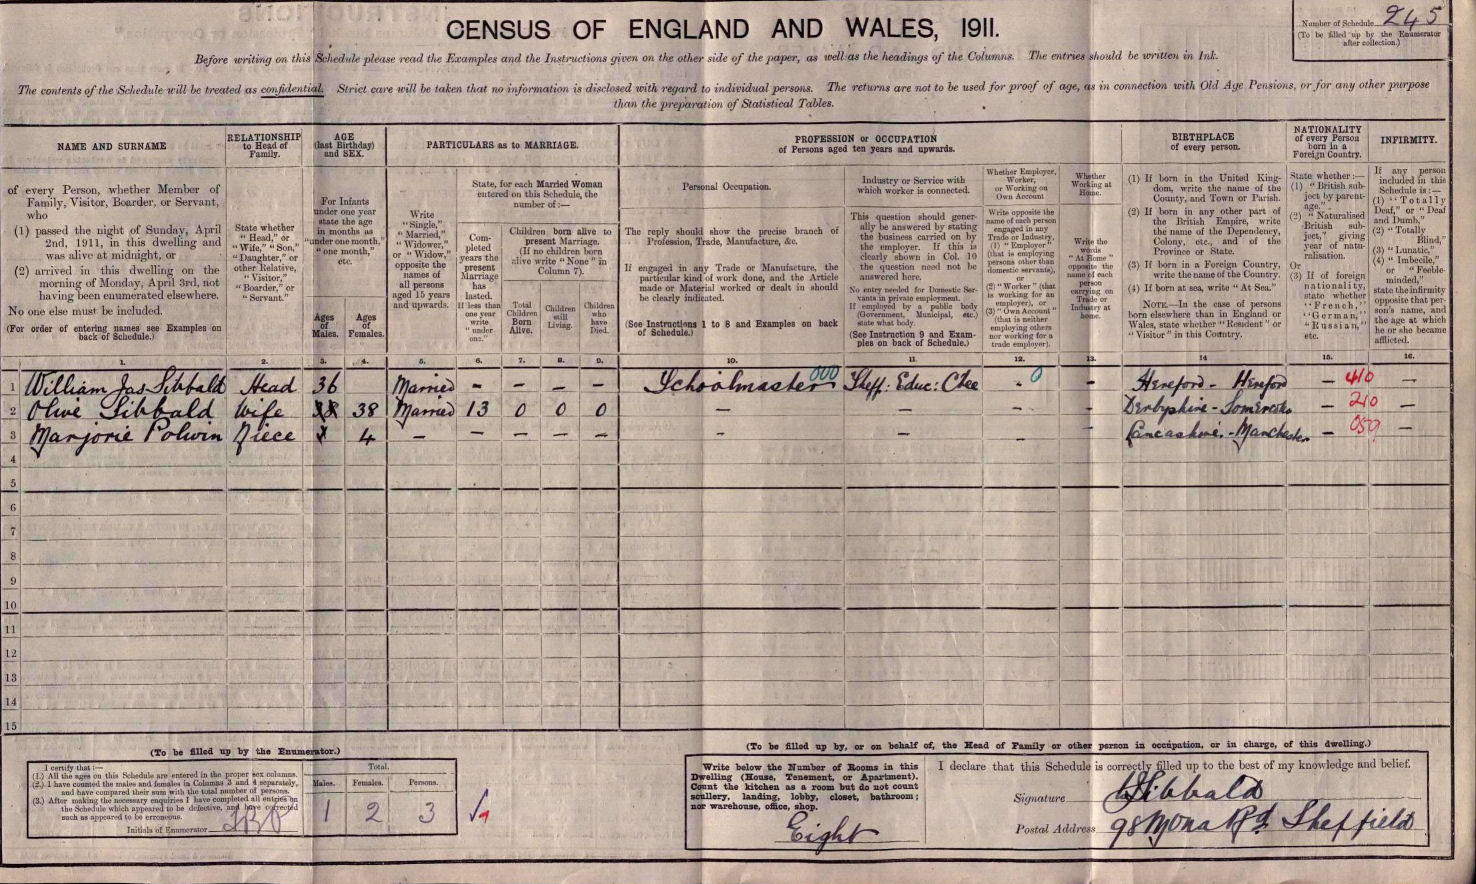 CENSUS OF ENGLAND AND WALES, 1911.
Number of Schedule 245
(To be filled up by the Enumerator
after collection.)
Before writing on this Schedule please read the Examples and the Instructions given on the other side of the paper, as well as the headings of the Columns. The entries should be written in Ink.
The contents of the Schedule will be treated as confidential. Strict care will be taken that no information is disclosed with regard to individual persons. The returns are not to be used for proof of age, as in connection with Old Age Pensions, or for any other purpose
than the preparation of Statistical Tables.
NAME AND SURNAME
of every Person, whether Member of
Family, Visitor, Boarder, or Servant,
who
(1) passed the night of Sunday, April
2nd, 1911, in this dwelling and
was alive at midnight, or
(2) arrived in this dwelling on the
morning of Monday, April 3rd, not
having been enumerated elsewhere.
No one else must be included.
(For order of entering names see Examples on
back of Schedule.)
RELATIONSHIP
to Head of
Family.
State whether
"Head," or
"Wife," "Son,"
"Daughter," or
other Relative,
"Visitor,"
"Boarder," or
"Servant."
AGE
(last Birthday)
and SEX.
For Infants
under one year
state the age
in months as
"under one month,"
"one month,"
etc.
Ages
of
Males.
Ages
of
Females.
PARTICULARS as to MARRIAGE.
Write
"Single,"
"Married,"
"Widower,"
or "Widow,"
opposite the
names of
all persons
aged 15 years
and upwards.
State, for each Married Woman
entered on this Schedule, the
number of:—
Com-
pleted
years the
present
Marriage
has
lasted.
If less than
one year
write
"under
one."
Children born alive to
present Marriage.
(If no children born
alive write "None" in
Column 7).
Total
Children
Born
Alive.
Children
still
Living.
Children
who
have
Died.
PROFESSION or OCCUPATION
of Persons aged ten years and upwards.
Personal Occupation.
The reply should show the precise branch of
Profession, Trade, Manufacture, &c.
If engaged in any Trade or Manufacture, the
particular kind of work done, and the Article
made or Material worked or dealt in should
be clearly indicated.
(See Instructions 1 to 8 and Examples on back
of Schedule.)
Industry or Service with
which worker is connected.
This question should gener-
ally be answered by stating
the business carried on by
the employer. If this is
clearly shown in Col. 10
the question need not be
answered here.
No entry needed for Domestic Ser-
vants in private employment.
If employed by a public body
(Government, Municipal, etc.)
state what body.
(See Instruction 9 and Exam-
ples on back of Schedule.)
Whether Employer,
Worker,
or Working on
Own Account
Write opposite the
name of each person
engaged in any
Trade or Industry,
(1) "Employer"
(that is employing
persons other than
domestic servants),
or
(2) "Worker" (that
is working for an
employer), or
(3) "Own Account"
(that is neither
employing others
nor working for a
trade employer).
Whether
Working at
Home.
Write the
words
"At Home"
opposite the
name of each
person
carrying on
Trade or
Industry at
home.
BIRTHPLACE
of every person.
(1) If born in the United King-
dom, write the name of the
County, and Town or Parish.
(2) If born in any other part of
the British Empire, write
the name of the Dependency,
Colony, etc., and of the
Province or State.
(3) If born in a Foreign Country,
write the name of the Country.
(4) If born at sea, write "At Sea."
NOTE.—In the case of persons
born elsewhere than in England or
Wales, state whether "Resident" or
"Visitor" in this Country.
NATIONALITY
of every Person
born in a
Foreign Country.
State whether:—
(1) "British sub-
ject by parent-
age."
(2) "Naturalised
British sub-
ject," giving
year of natu-
ralisation.
Or
(3) If of foreign
nationality,
state whether
"French,"
"German,"
"Russian,"
etc.
INFIRMITY.
If any person
included in this
Schedule is:—
(1) "Totally
Deaf," or "Deaf
and Dumb,"
(2) "Totally
Blind,"
(3) "Lunatic,"
(4) "Imbecile,"
or "Feeble-
minded,"
state the infirmity
opposite that per-
son's name, and
the age at which
he or she became
afflicted.
1. 2. 3. 4. 5. 6. 7. 8. 9. 10. 11. 12. 13. 14 15. 16.
1 William Jas Sibbald Head 36 Married – – – – Schoolmaster 000 Sheff: Educ: Ctee - 0 - Hereford - Hereford – 410 –
2 Olive Sibbald Wife 38 Married 13 0 0 0 – – - - Derbyshire - Somercotes – 210 –
3 Marjorie Polwin Niece 4 – – – – – – – – - Lancashire - Manchester – 050 –
4
5
6
7
8
9
10
11
12
13
14
15
(To be filled up by the Enumerator.)
I certify that:—
(1.) All the ages on this Schedule are entered in the proper sex columns.
(2.) I have counted the males and females in Columns 3 and 4 separately,
and have compared their sum with the total number of persons.
(3.) After making the necessary enquiries I have completed all entries on
the Schedule which appeared to be defective, and have corrected
such as appeared to be erroneous.
Initials of Enumerator
Total.
Males. Females. Persons.
1 2 3
(To be filled up by, or on behalf of, the Head of Family or other person in occupation, or in charge, of this dwelling.)
Write below the Number of Rooms in this
Dwelling (House, Tenement, or Apartment).
Count the kitchen as a room but do not count
scullery, landing, lobby, closet, bathroom;
nor warehouse, office, shop.
Eight
I declare that this Schedule is correctly filled up to the best of my knowledge and belief.
Signature WJSibbald
Postal Address 98 Mona Rd Sheffield